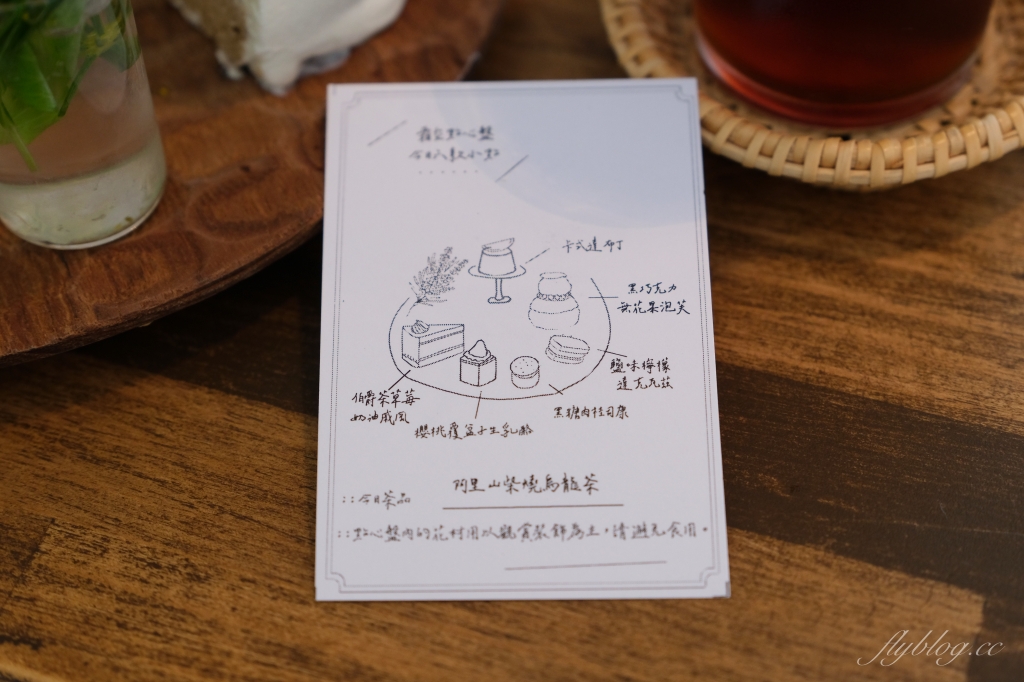 點心盤
今日六款小點
卡式達布丁
黑巧克力
無花果泡芙
鹽味檸檬
達克瓦茲
黑糖肉桂司康
櫻桃覆盆子生乳酪
伯爵茶草莓
奶油戚風
::今日茶品
阿里山柴燒烏龍茶
::點心盤內的花材用以觀賞裝飾為主,請避免食用。
flyblog.cc